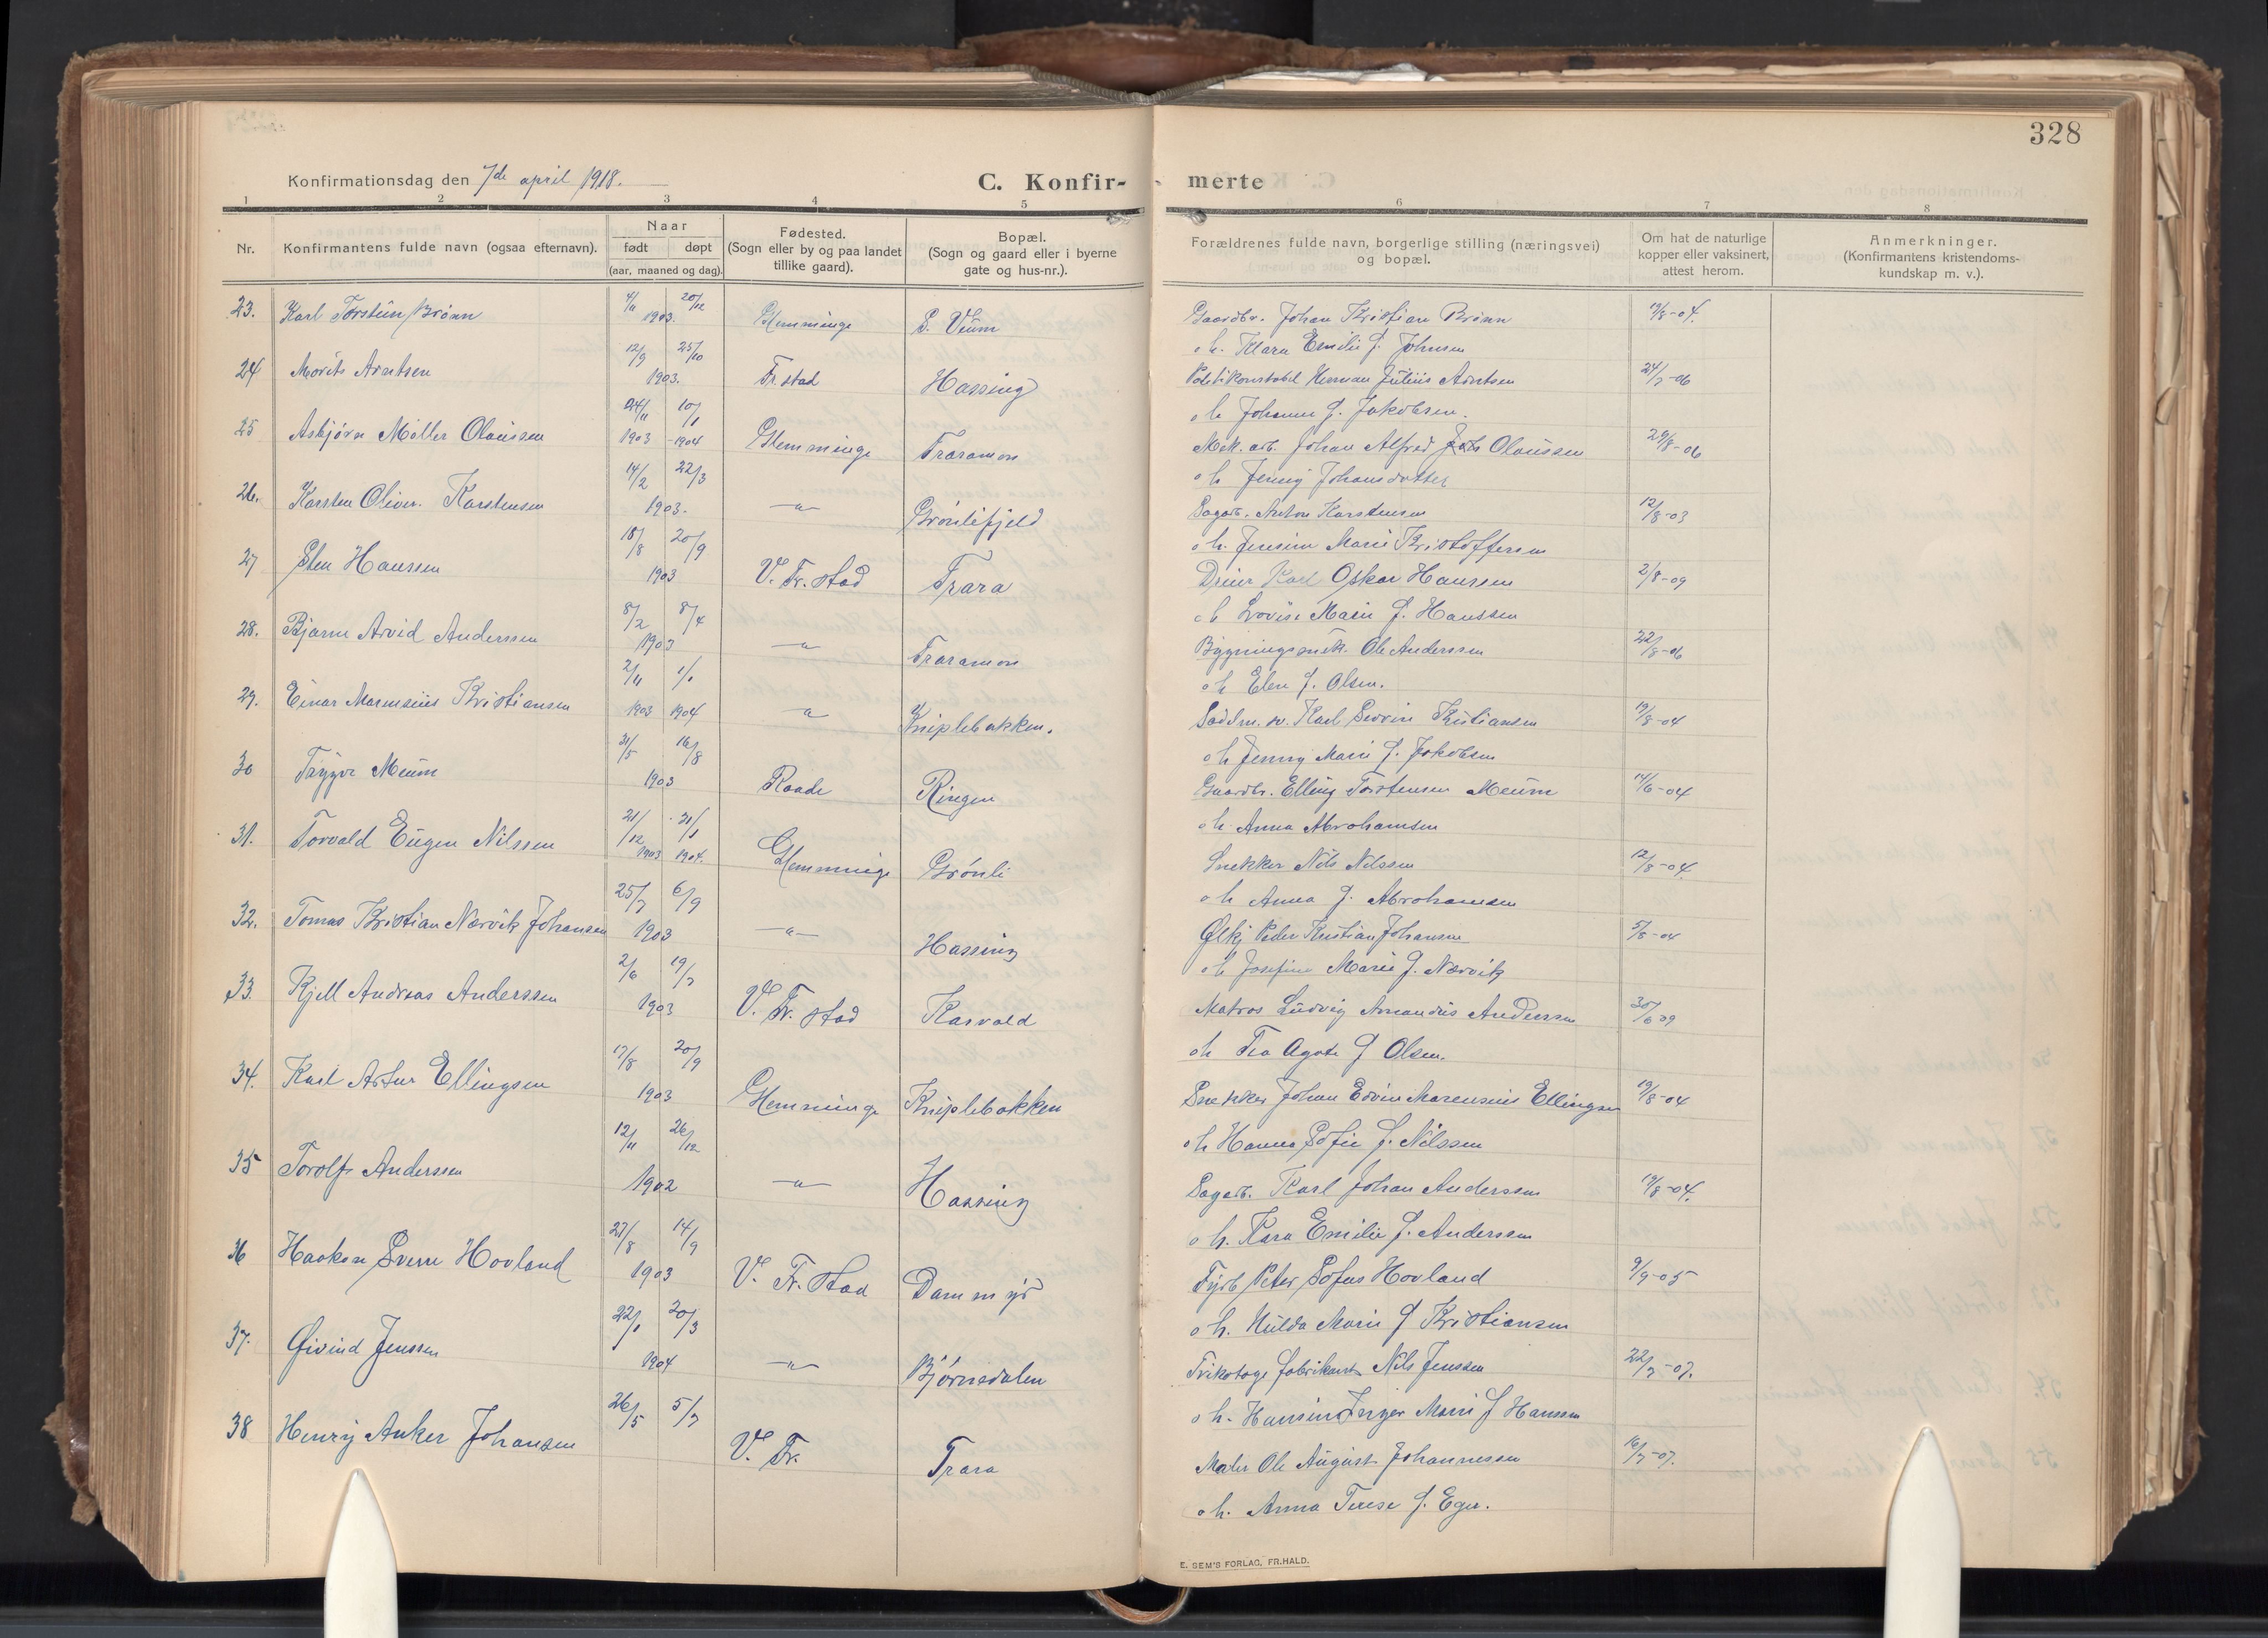 328
Konfirmationsdag den 7de april 1918.
C. Konfir- merte
1 2 3 4 5 6 7 8
Nr. Konfirmantens fulde navn (ogsaa efternavn). Naar født døpt (aar, maaned og dag). Fødested. (Sogn eller by og paa landet tillike gaard). Bopæl. (Sogn og gaard eller i byerne gate og hus-nr.). Forældrenes fulde navn, borgerlige stilling (næringsvei) og bopæl. Om hat de naturlige kopper eller vaksinert, attest herom. Anmerkninger. (Konfirmantens kristendomskundskap m. v.).
23. Karl Torstein Brönn 4/11 20/12 1903. Glemminge S. Veum Gaardbr. Johan Kristian Brönn 19/8-04.
o h. Klara Emilie f. Johnsen
24 Morits Arntsen 12/9 25/10 1903. Fr stad Hassing Politikonstabel Herman Julius Arntsen 24/7-06
o h Johanne f. Jakobsen.
25 Asbjørn Möller Olaussen 24/11 10/1 1903-1904 Glemminge Traramon Mek. arb. Johan Alfred Olaussen 29/8-06
o h Jenny Johansdotter
26. Karsten Oliver Karstensen 14/2 22/3 1903. -"- Grönlifjeld Sagarb. Anton Karstensen 12/8-03
o h. Jensine Marie Kristoffersen
27 Sten Hanssen 18/8 20/9 1903 V. Fr. stad Trara Dreier Karl Oskar Hanssen 2/8-09
o h Lovise Marie f. Hanssen
28. Bjarne Arvid Anderssen 8/2 8/4 1903 -"- Traramon Bygningssnek. Ole Anderssen 22/8-06
o h Elen f. Olsen.
29. Einar Marensius Kristiansen 2/11 1/1 1903 1904 -"- Kniplebakken. Sadelm. sv. Karl Severin Kristiansen 19/8-04
o h Jenny Marie f. Jakobsen
30 Trygve Meum 31/5 16/8 1903 Raade Ringen Gaardbr. Elling Torstensen Meum 14/6-04
o h. Anna Abrahamsen
31. Torvald Eugen Nilssen 21/12 31/1 1903 1904. Glemminge Grönli Snekker Nils Nilssen 12/8-04.
o h Anna f. Abrahamsen
32. Tomas Kristian Nærvik Johansen 25/7 6/9 1903 -"- Hassing Ølkj Peder Kristian Johansen 5/8-04
o h Josefine Marie f. Nærvik
33. Kjell Andreas Anderssen 2/6 19/7 1903 V. Fr. stad Rasvold Matros Ludvig Amandus Anderssen 30/6 09
oh Tea Agate f Olsen.
34. Karl Artur Ellingsen 17/8 20/9 1903 Glemminge Kniplebakken Snekker Johan Edvin Marensius Ellingsen 19/8-04
o h Hanna Sofie f. Nilssen
35 Torolf Anderssen 12/11 26/12 1902 -"- Hassing Sagarb. Karl Johan Anderssen 19/8-04.
o h. Kara Emilie f. Anderssen
36 Haakon Sverre Hovland 27/8 14/9 1903 V. Fr. Stad Dammyr Fyrb Peter Sofus Hovland 9/9-05
o h. Hulda Marie f Kristiansen
37. Øivind Jenssen 22/1 20/3 1904 -"- Bjørnedalen Trikotage fabrikant Nils Jenssen 22/7-07.
o h. Hansine Inger Marie f Hanssen
38 Henry Anker Johansen 26/5 5/7 V. Fr. Trara Maler Ole August Johannessen 16/7-07.
o h. Anna Terese f. Eger.
E. SEM'S FORLAG, FR.HALD.